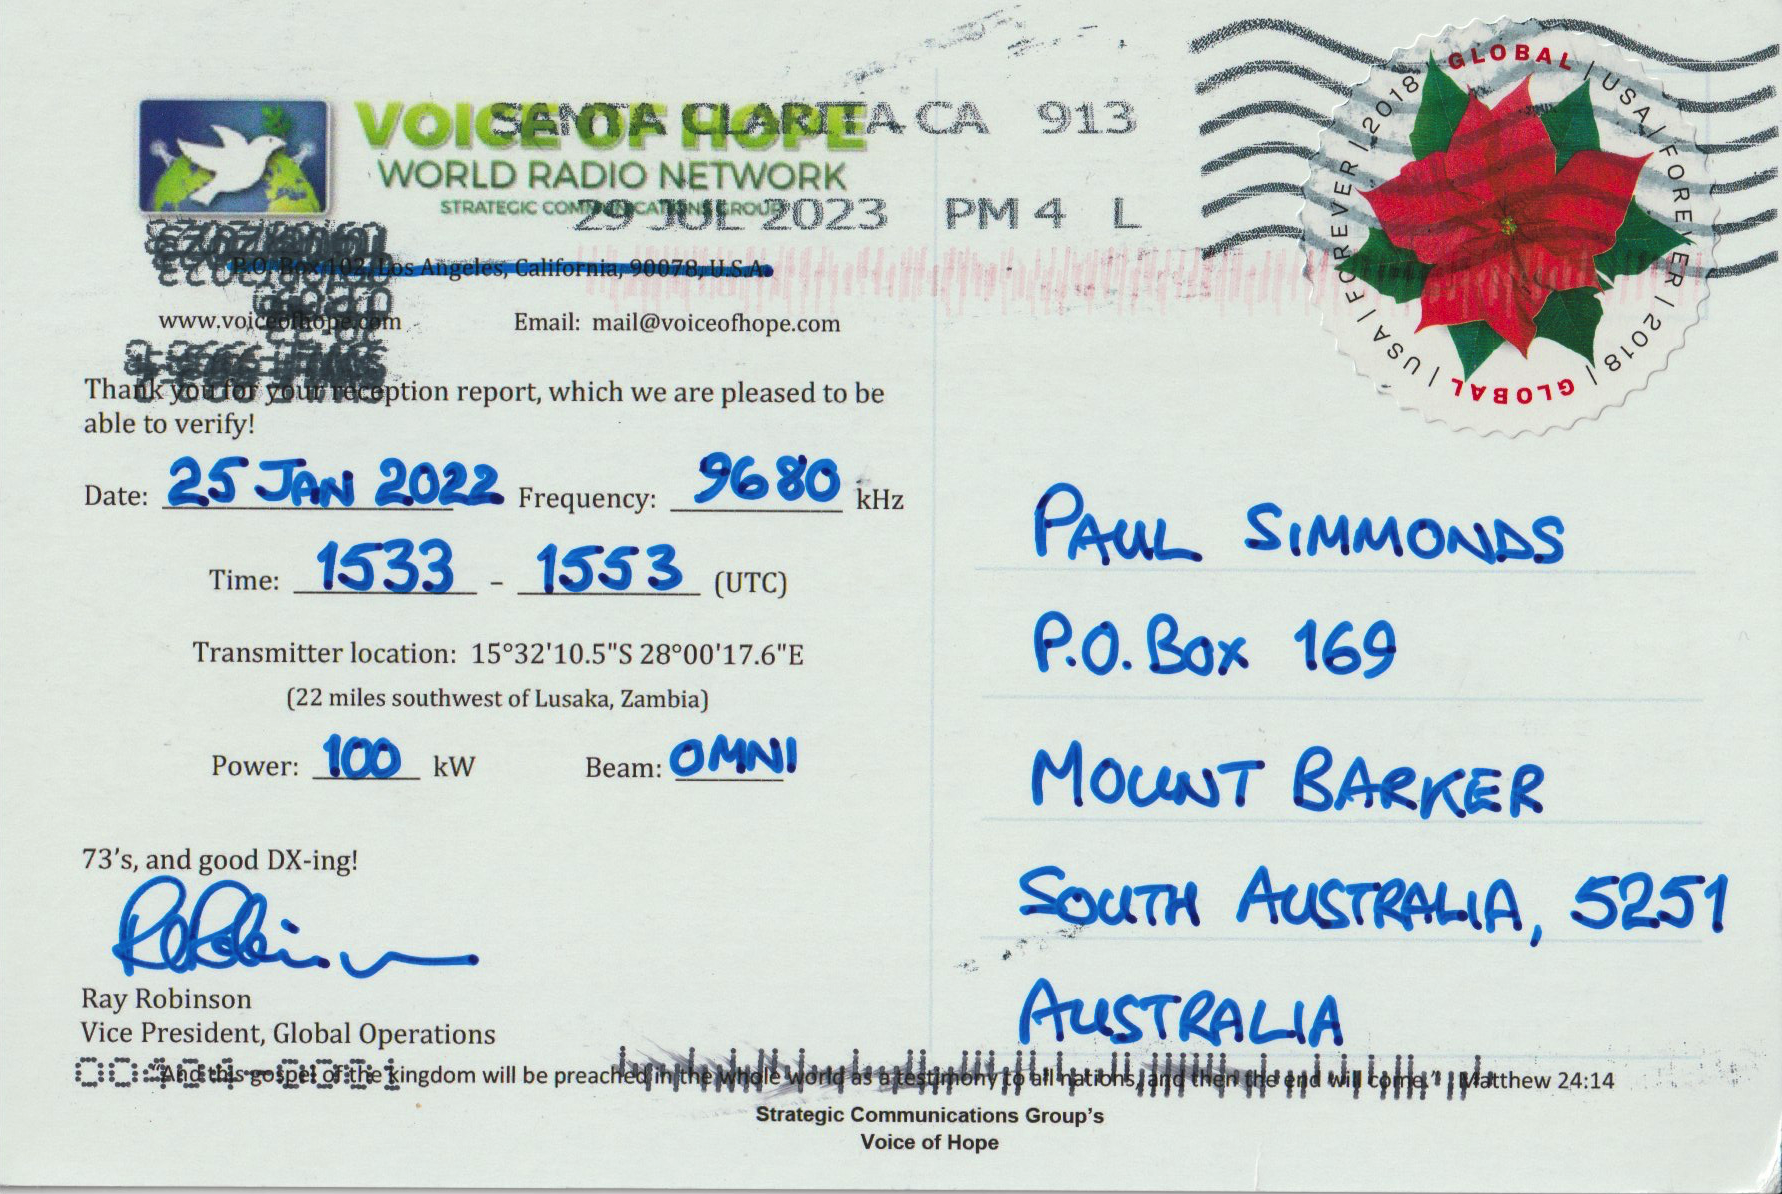 VOICE OF HOPE
WORLD RADIO NETWORK
STRATEGIC COMMUNICATIONS GROUP
SANTA CLARITA CA 913
29 JUL 2023 PM 4 L
P.O. Box 102, Los Angeles, California, 90078, U.S.A.
www.voiceofhope.com Email: mail@voiceofhope.com
GLOBAL | USA | FOREVER | 2018 | GLOBAL | USA | FOREVER | 2018
Thank you for your reception report, which we are pleased to be
able to verify!
Date: 25 JAN 2022 Frequency: 9680 kHz
Time: 1533 - 1553 (UTC)
Transmitter location: 15°32'10.5"S 28°00'17.6"E
(22 miles southwest of Lusaka, Zambia)
Power: 100 kW Beam: OMNI
73's, and good DX-ing!
Ray Robinson
Vice President, Global Operations
PAUL SIMMONDS
P.O. Box 169
MOUNT BARKER
SOUTH AUSTRALIA, 5251
AUSTRALIA
"And this gospel of the kingdom will be preached in the whole world as a testimony to all nations, and then the end will come." Matthew 24:14
Strategic Communications Group's
Voice of Hope